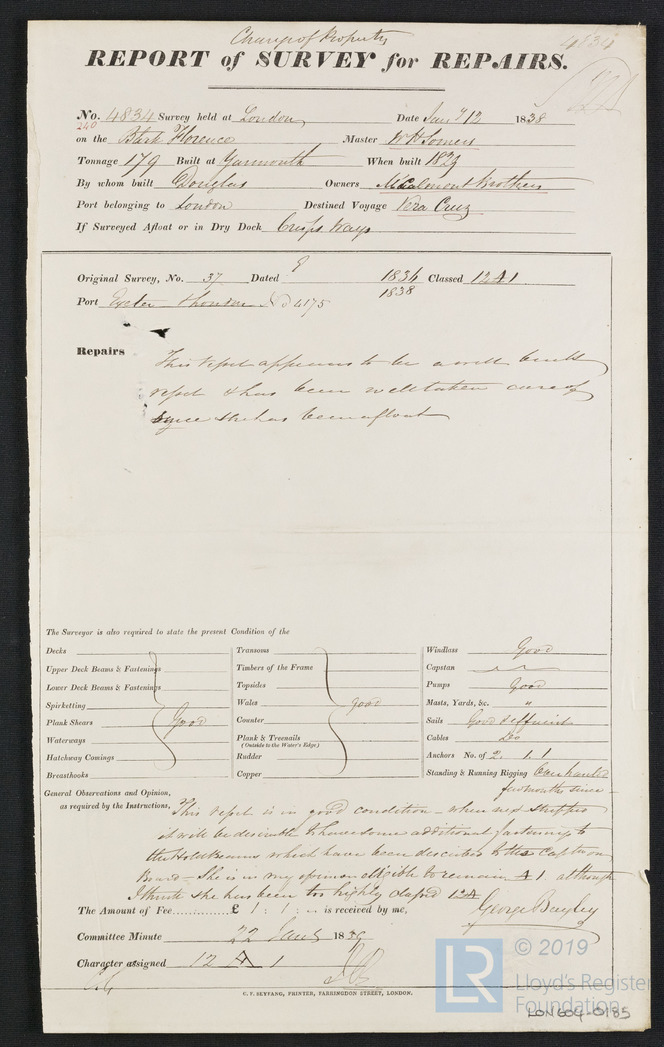 Change of Property
4834
REPORT of SURVEY for REPAIRS.
No. 4834 Survey held at London Date Jany 12 1838
240
on the Bark Florence Master W H Somers
Tonnage 179 Built at Yarmouth When built 1823
By whom built Douglas Owners McCalmont Brothers
Port belonging to London Destined Voyage Vera Cruz
If Surveyed Afloat or in Dry Dock Crisps Ways
Original Survey, No. 37 Dated 1834 Classed 12 A 1
1838
Port Exeter & London No 4175
Repairs This vessel appears to be a well built
vessel & has been well taken care of
since she has been afloat
The Surveyor is also required to state the present Condition of the
Decks
Upper Deck Beams & Fastenings
Lower Deck Beams & Fastenings
Spirketting
Plank Shears Good
Waterways
Hatchway Comings
Breasthooks
Transoms
Timbers of the Frame
Topsides
Wales good
Counter
Plank & Treenails
(Outside to the Water's Edge)
Rudder
Copper
Windlass Good
Capstan
Pumps Good
Masts, Yards, &c. "
Sails Good & efficient
Cables Do
Anchors No. of 2. 1. 1
Standing & Running Rigging Overhauled
few months since
General Observations and Opinion,
as required by the Instructions,
This vessel is in good condition - when next stripped
it will be desirable to have some additional fastenings to
the Hold Beams which have been described to the Captain
Board - She is in my opinion eligible to remain A 1 although
I think she has been too highly classed 12 A
The Amount of Fee £ 1 : 1 : .. is received by me,
George Bayley
Committee Minute 22 Jany 1838
Character assigned 12 A 1
C. F. SEYFANG, PRINTER, FARRINGDON STREET, LONDON.
LR
© 2019
Lloyd's Register
Foundation
LON604-0185